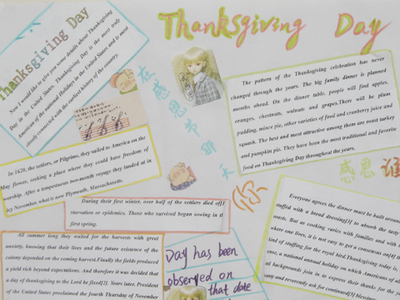 Thanksgiving Day
Thanksgiving Day
Now I would like to give you some details about Thanksgiving
Day in the United States. Thanksgiving Day is the most truly
American of the national Holidays in the United States and is most
closely connected with the earliest history of the country.
在感恩节
In 1620, the settlers, or Pilgrims, they sailed to America on the
May flower, seeking a place where they could have freedom of
worship. After a tempestuous two-month voyage they landed at in
icy November, what is now Plymouth, Massachusetts.
During their first winter, over half of the settlers died of
starvation or epidemics. Those who survived began sowing in the
first spring.
All summer long they waited for the harvests with great
anxiety, knowing that their lives and the future existence of the
colony depended on the coming harvest. Finally the fields produced
a yield rich beyond expectations. And therefore it was decided that
a day of thanksgiving to the Lord be fixed
. Years later, President
of the United States proclaimed the fourth Thursday of November
The pattern of the Thanksgiving celebration has never
changed through the years. The big family dinner is planned
months ahead. On the dinner table, people will find apples,
oranges, chestnuts, walnuts and grapes. There will be plum
pudding, mince pie, other varieties of food and cranberry juice and
squash. The best and most attracting among them are roast turkey
and pumpkin pie. They have been the most traditional and favorite
food on Thanksgiving Day throughout the years.
感恩谁
你
Everyone agrees the dinner must be built around
stuffed with a bread dressing
to absorb the tasty
roasts. But as cooking varies with families and with
where one lives, it is not easy to get a consensus on
kind of stuffing for the royal bird. Thanksgiving today
case, a national annual holiday on which Americans of
backgrounds join in to express their thanks for the
Day has been
observed on
that date